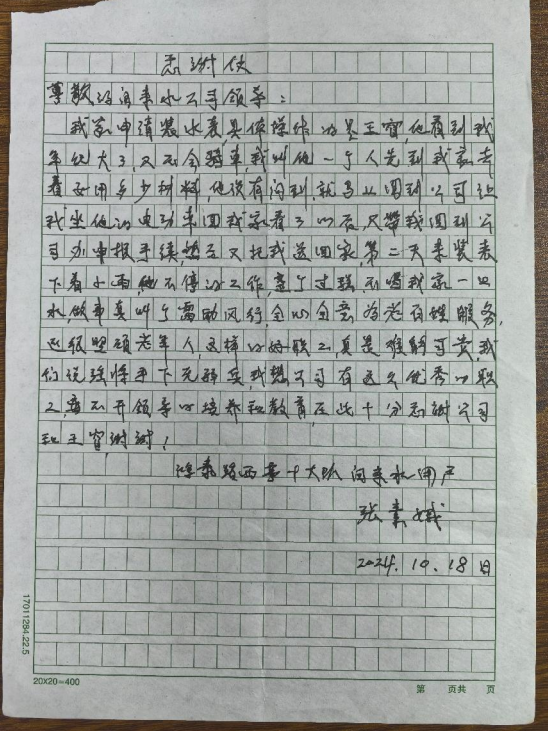 感谢信
尊敬的自来水公司领导：
我家申请装水表，具体操作的是王官他看到我
年纪大了，又不会骑车，我叫他一个人先到我家去
看要用多少材料，他没有问到，就马上回到公司让
我坐他的电动车回我家看了以后，又带我回到公
司办申报手续，然后又把我送回家，第二天来装表
下着小雨，他不停的工作，整个过程不喝我家一口
水，做事真叫个雷励风行，全心全意为老百姓服务，
还很照顾老年人，这样的好职工真是难能可贵我
们说强将手下无弱兵，我想公司有这么优秀的职
工，离不开领导的培养和教育在此十分感谢公司
和王官，谢谢！
路西 十大队 自来水用户
张素娥
2024.10.18日
17011284.22.5
20X20=400
第 页共 页